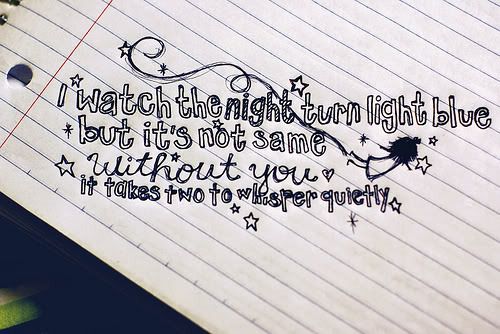 I watch the night turn light blue
but it's not same
without you
it takes two to whisper quietly